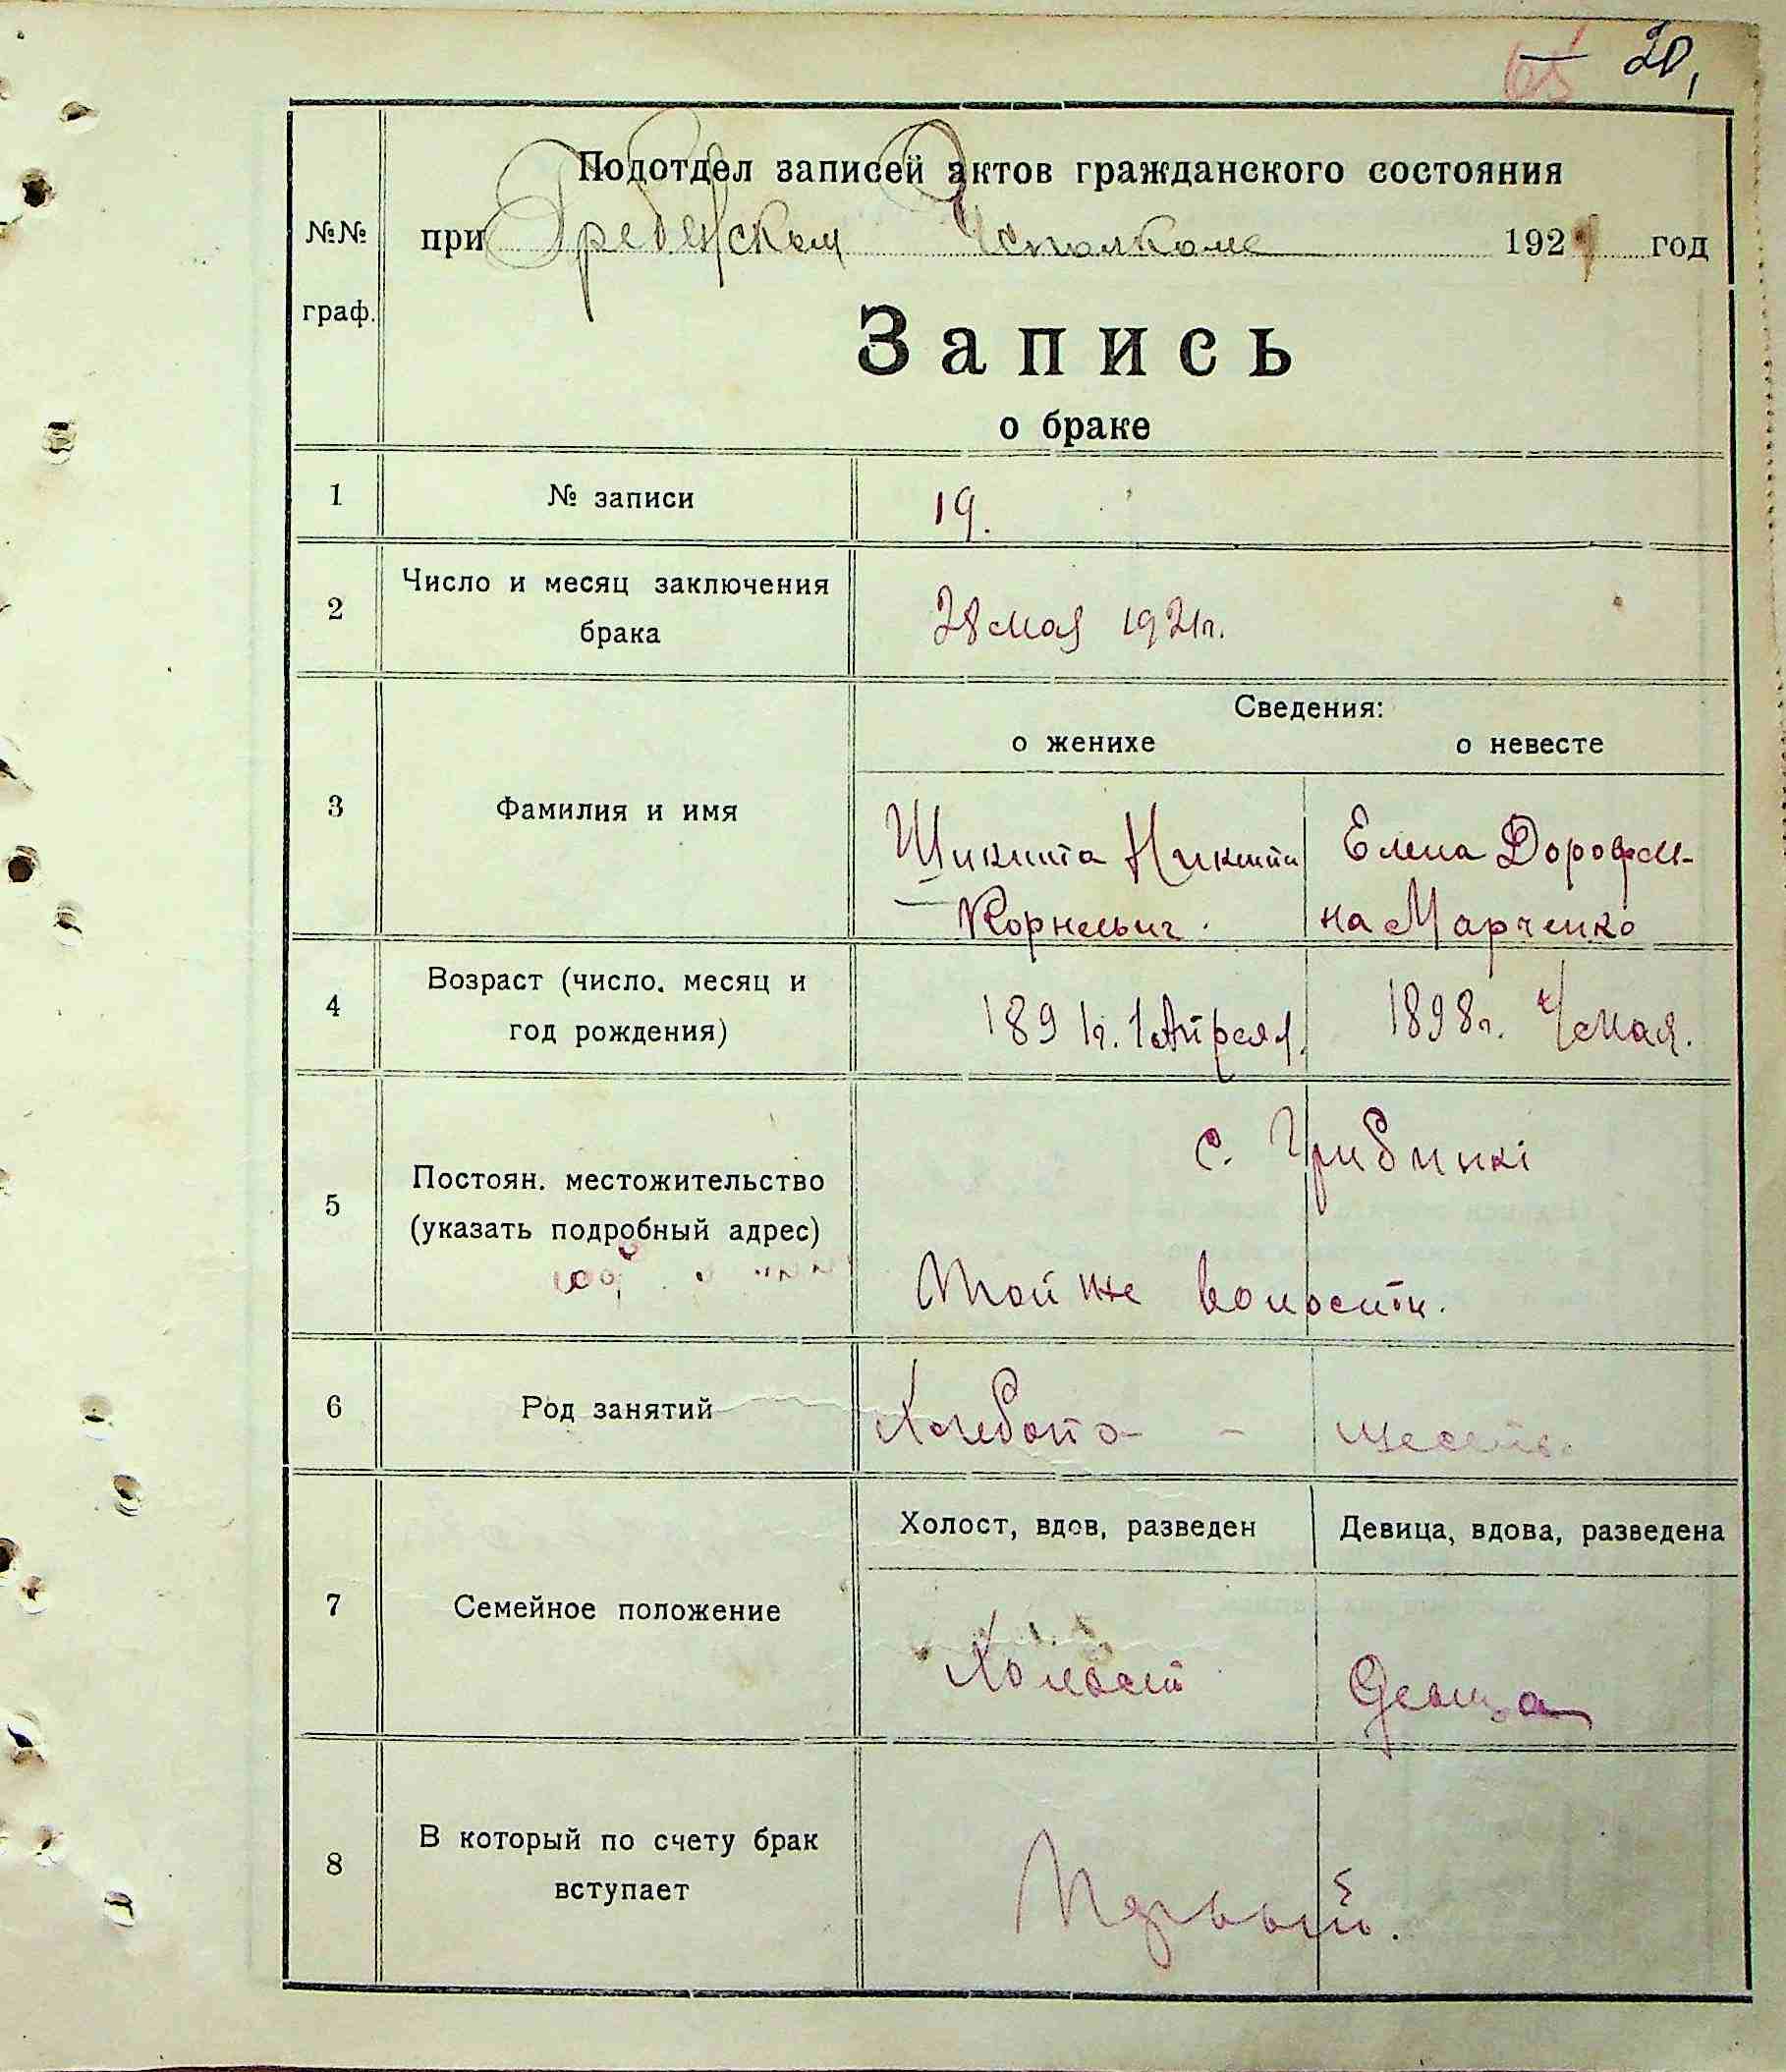 20,
Подотдел записей актов гражданского состояния
№№ при Гребенском Исполкоме 1921 год
граф.
Запись
о браке
1 № записи 19.
2 Число и месяц заключения брака 28 мая 1921 г.
Сведения:
о женихе о невесте
3 Фамилия и имя
Шикита Никита Елена Дорофеи-
Корнеевич. на Марченко
4 Возраст (число. месяц и год рождения) 1891 г. 1 Апреля. 1898 г. 4 мая.
5 Постоян. местожительство (указать подробный адрес)
с. Грибинкі
Той же волости.
6 Род занятий Хлебопа- - шество.
Холост, вдов, разведен Девица, вдова, разведена
7 Семейное положение Холост Девица
8 В который по счету брак вступает Первый.